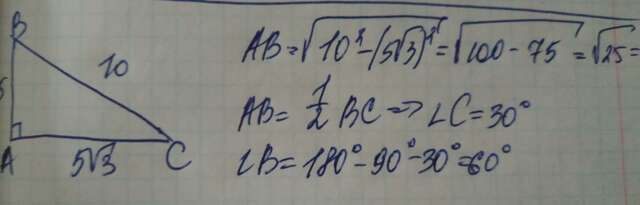 B
10
5
A
5√3
C
AB=√(10²-(5√3)²)=√(100-75)=√25=
AB= 1/2 BC => ∠C=30°
∠B=180°-90°-30°=60°